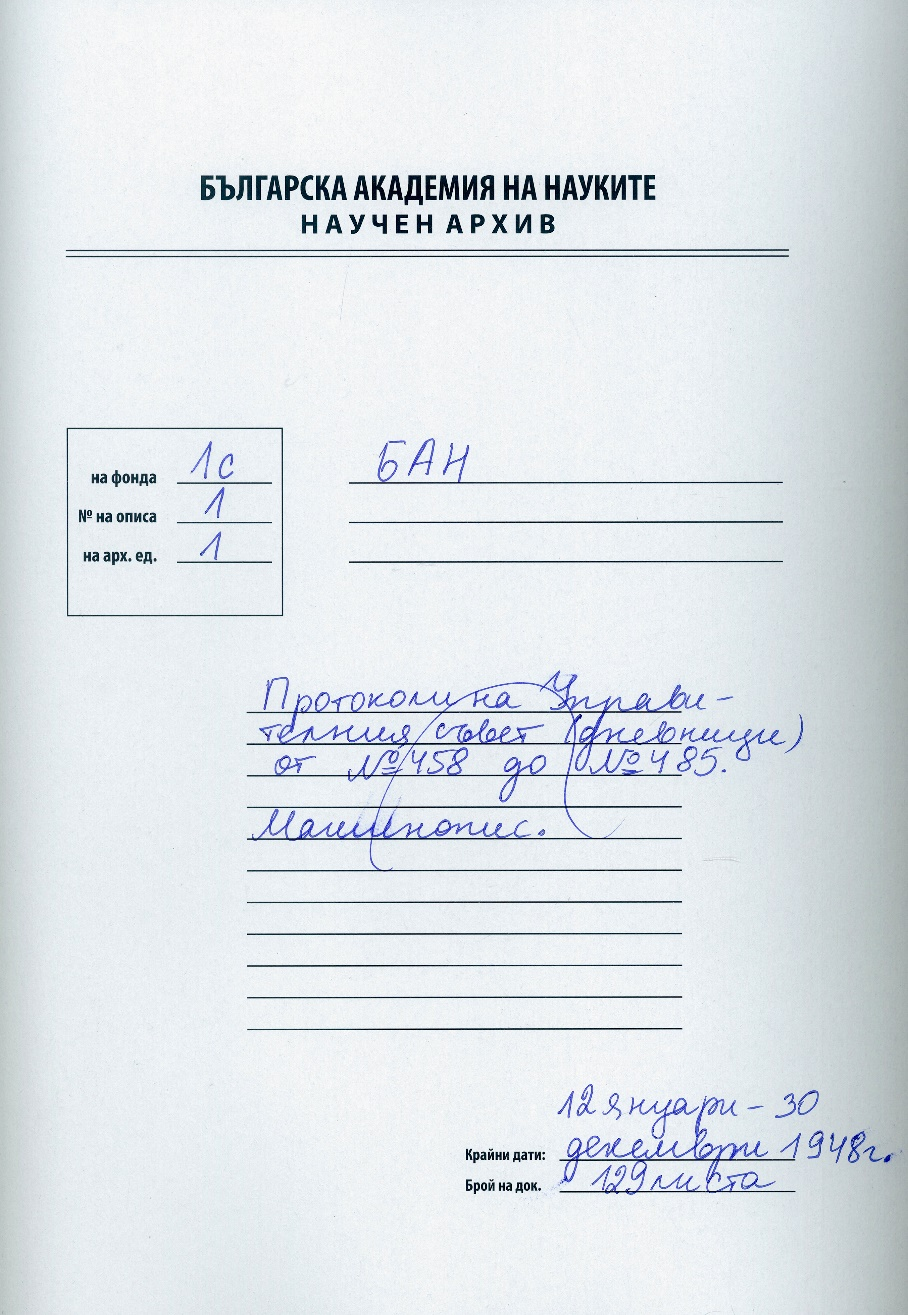 БЪЛГАРСКА АКАДЕМИЯ НА НАУКИТЕ
НАУЧЕН АРХИВ
на фонда 1с
№ на описа 1
на арх. ед. 1
БАН
Протоколи на Управи-
телния съвет (дневници)
от №458 до №485.
Машинопис.
12 януари - 30
Крайни дати: декември 1948г.
Брой на док. 129 листа